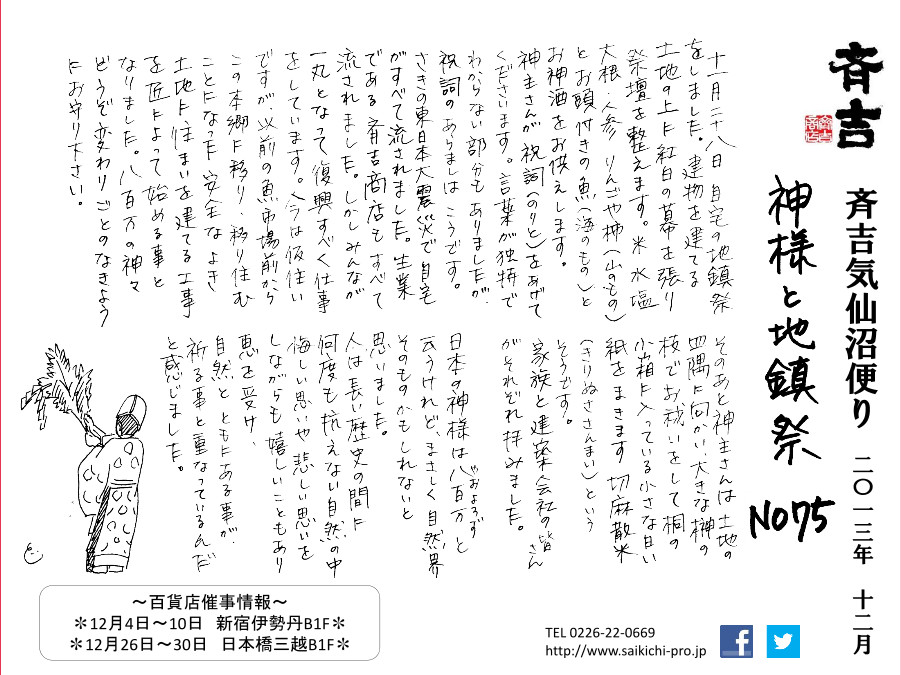 斉吉
斉吉気仙沼便り 二〇一三年 十二月
神様と地鎮祭 No75
十一月二十八日 自宅の地鎮祭
をしました。建物を建てる
土地の上に紅白の幕を張り
祭壇を整えます。米 水 塩
大根・人参 りんごや柿(山のもの)
とお頭付きの魚(海のもの)と
お神酒をお供えします。
神主さんが祝詞(のりと)をあげて
くださいます。言葉が独特で
わからない部分もありましたが、
祝詞のあらましはこうです。
さきの東日本大震災で自宅
がすべて流されました。生業
である斉吉商店もすべて
流されました。しかしみんなが
一丸となって復興すべく仕事
をしています。今は仮住い
ですが、以前の魚市場前から
この本郷に移り、移り住む
ことになった 安全な よき
土地に住まいを建てる工事
を匠によって始める事と
なりました。八百万の神々
どうぞ変わりごとのなきよう
にお守り下さい。
そのあと神主さんは土地の
四隅に向かい、大きな榊の
枝でお祓いをして桐の
小箱に入っている小さな白い
紙をまきます 切麻散米
(きりぬささんまい)という
そうです。
家族と建築会社の皆さん
がそれぞれ拝みました。
日本の神様は八百万と
やおよろず
云うけれど、まさしく自然界
そのものかもしれないと
思いました。
人は長い歴史の間に
何度も抗えない自然の中
悔しい思いや悲しい思いを
しながらも嬉しいこともあり
恵を受け、
自然と ともにある事が、
祈る事と重なっているんだ
と感じました。
～百貨店催事情報～
＊12月4日～10日 新宿伊勢丹B1F＊
＊12月26日～30日 日本橋三越B1F＊
TEL 0226-22-0669
http://www.saikichi-pro.jp